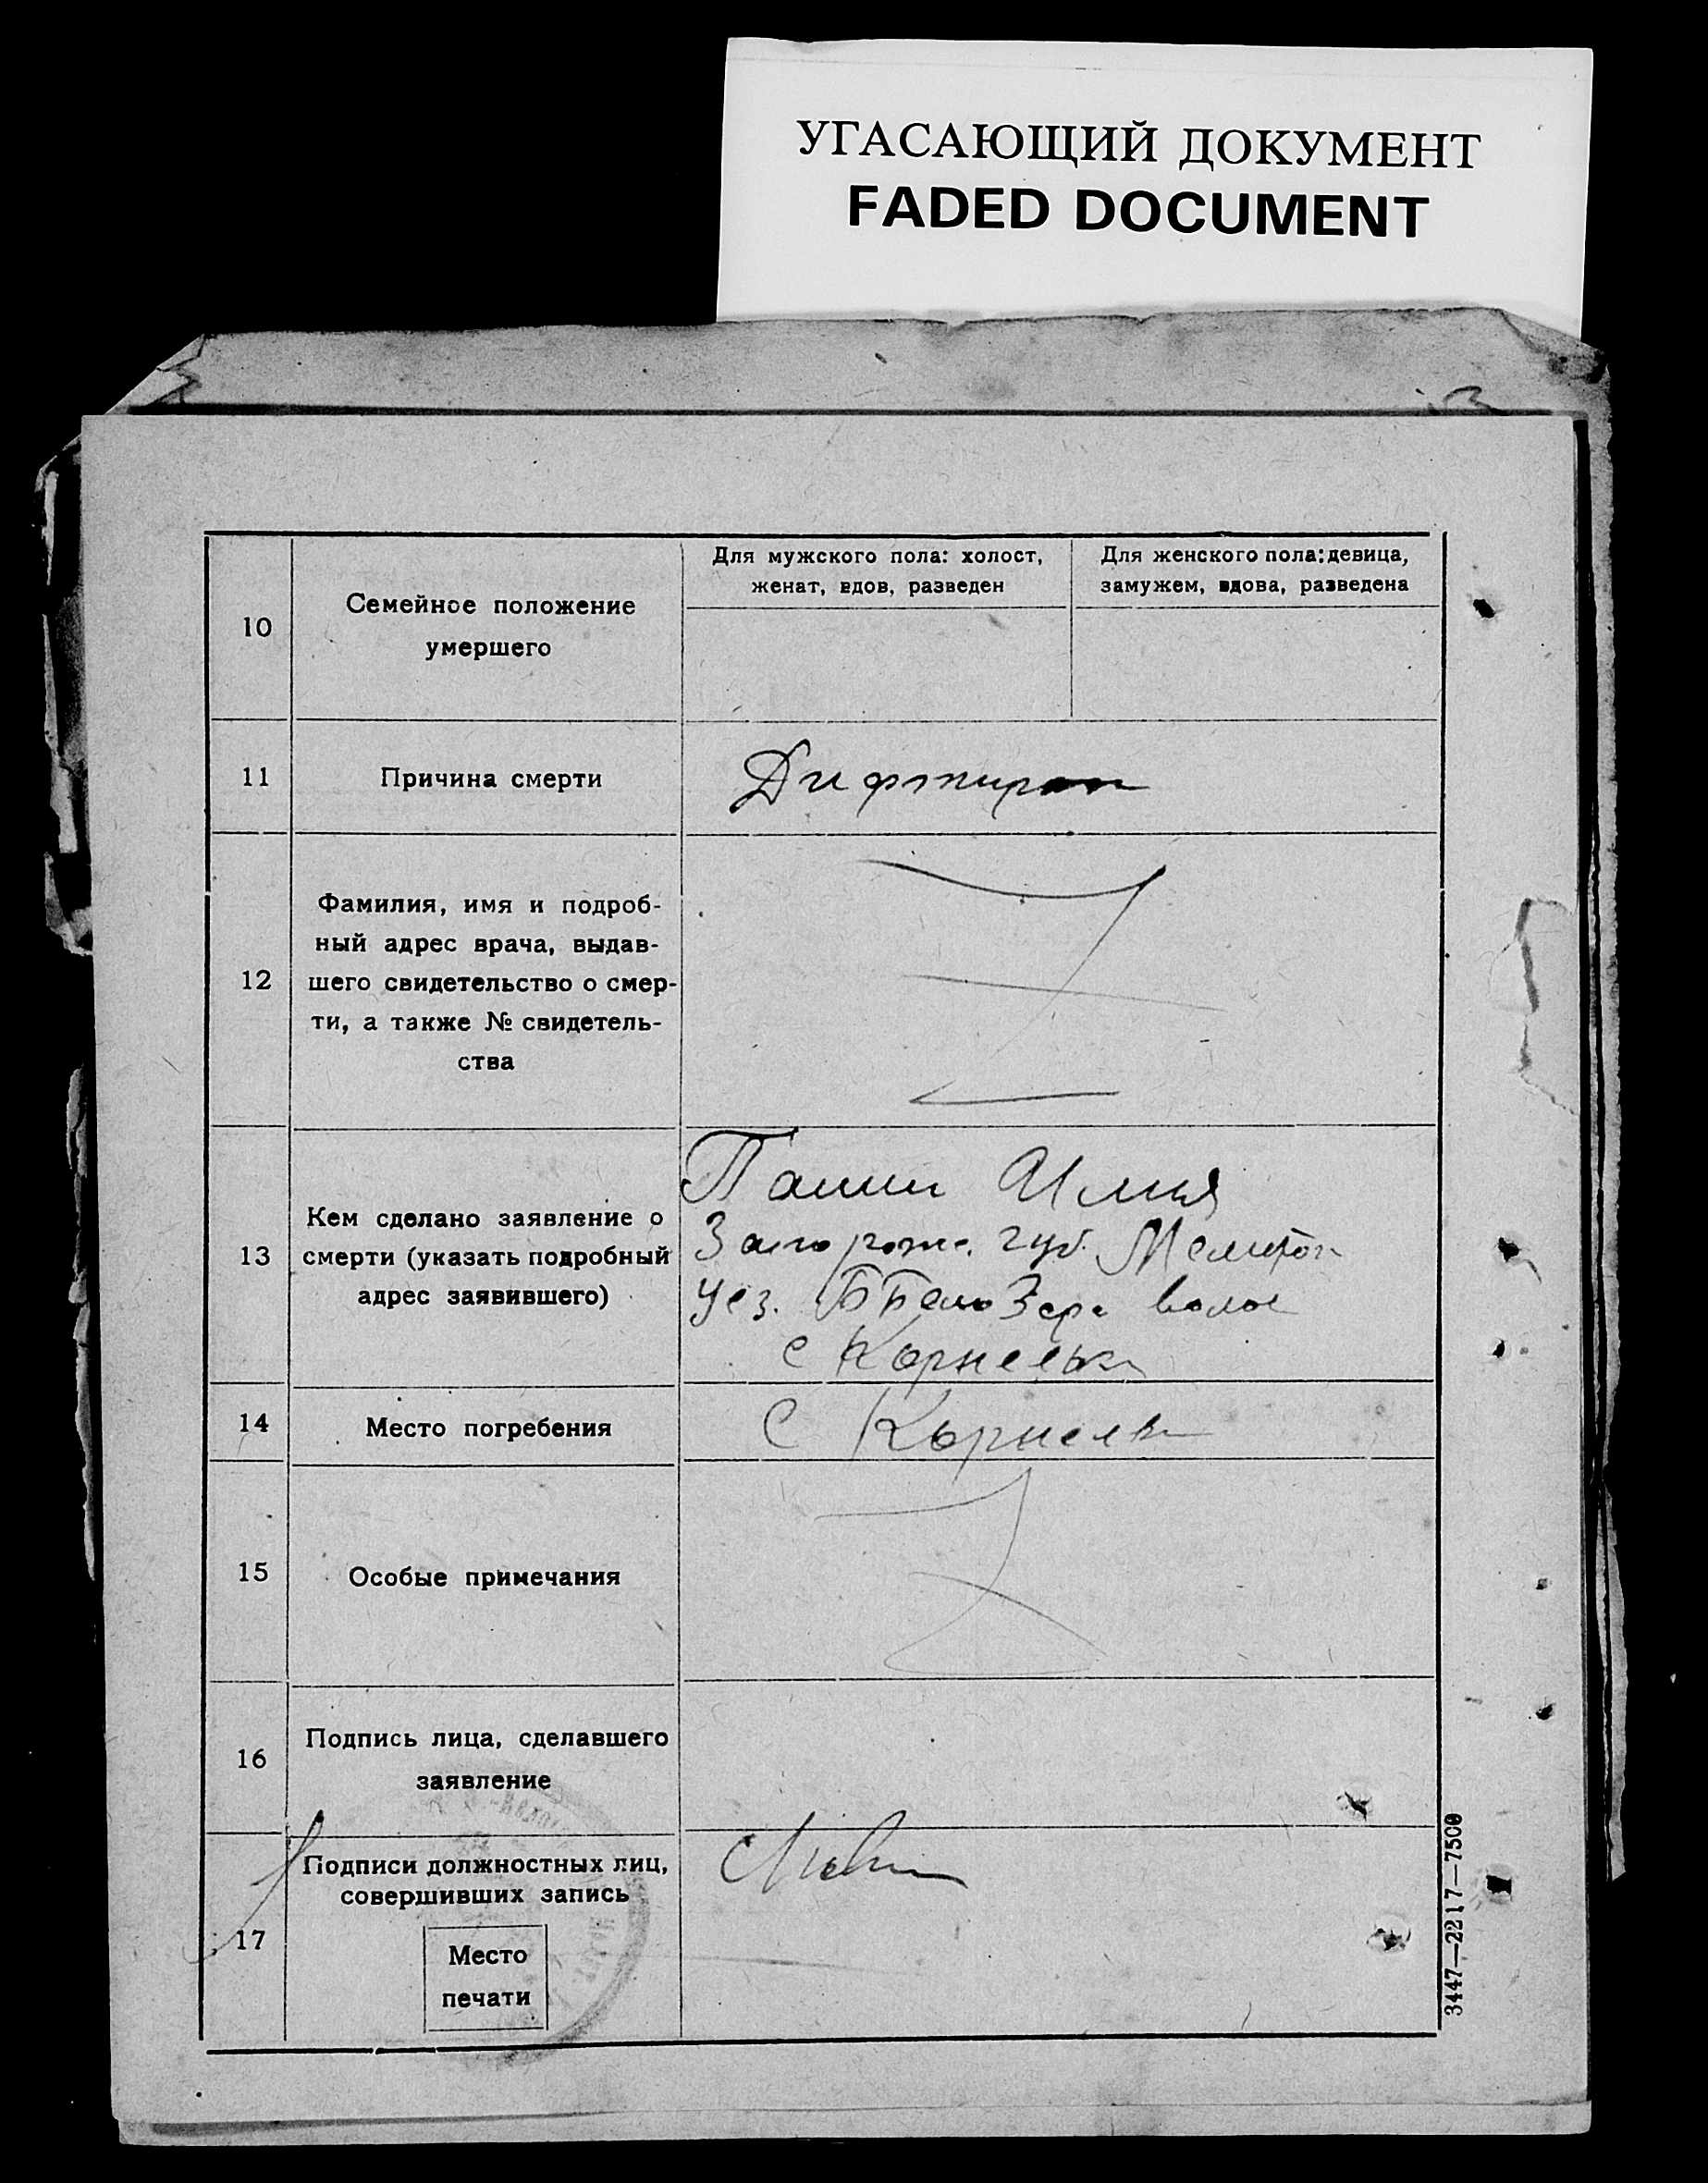 УГАСАЮЩИЙ ДОКУМЕНТ
FADED DOCUMENT
10
Семейное положение
умершего
Для мужского пола: холост,
женат, вдов, разведен
Для женского пола: девица,
замужем, вдова, разведена
11
Причина смерти
12
Фамилия, имя и подроб-
ный адрес врача, выдав-
шего свидетельство о смер-
ти, а также № свидетель-
ства
13
Кем сделано заявление о
смерти (указать подробный
адрес заявившего)
Илья
губ.
Уез.
с
14
Место погребения
С
15
Особые примечания
16
Подпись лица, сделавшего
заявление
17
Подписи должностных лиц,
совершивших запись
Место
печати
3447—2217—7500